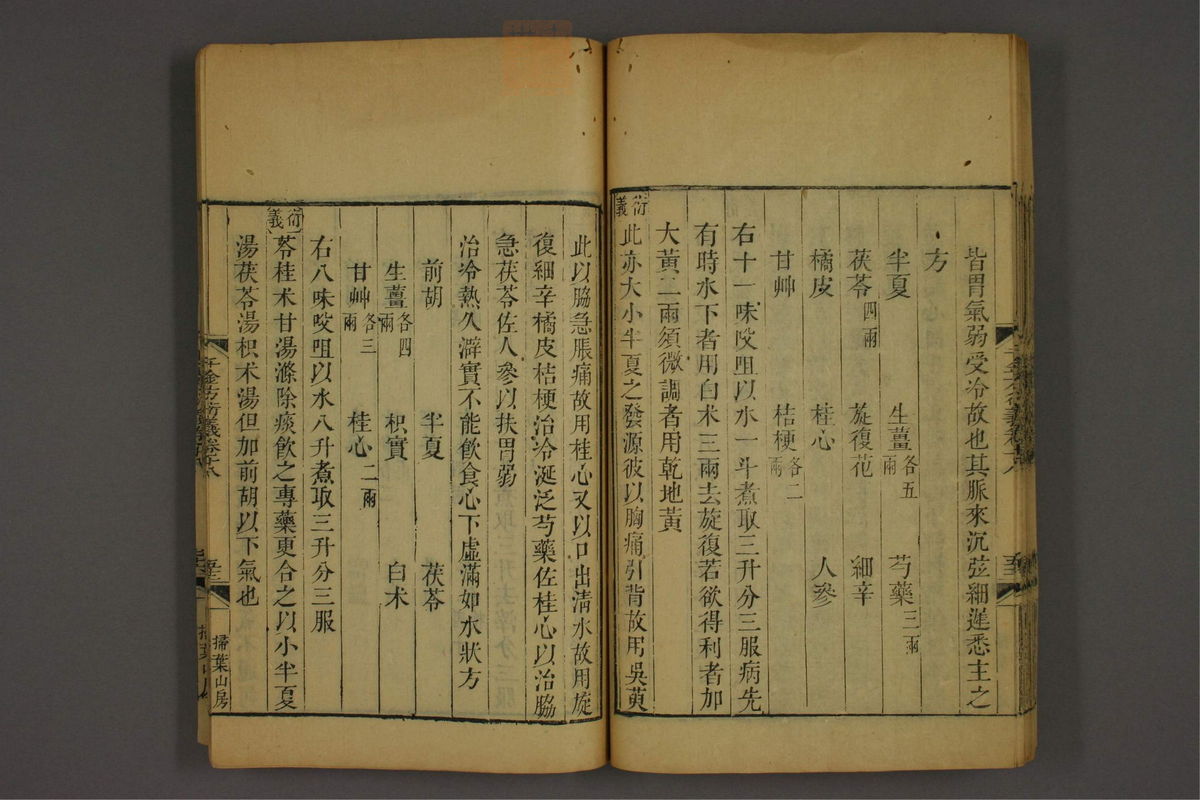 皆胃氣弱受冷故也其脈來沉弦細遲悉主之
方
半夏 生薑各五兩 芍藥三兩
茯苓四兩 旋復花 細辛
橘皮 桂心 人參
甘艸 桔梗各二兩
右十一味㕮咀以水一斗煮取三升分三服病先
有時水下者用白术三兩去旋復若欲得利者加
大黃二兩須微調者用乾地黃
衍義
此亦大小半夏之發源彼以胸痛引背故用吳萸
此以脇急脹痛故用桂心又以口出淸水故用旋
復細辛橘皮桔梗治冷涎泛芍藥佐桂心以治脇
急茯苓佐人參以扶胃弱
治冷熱久澼實不能飲食心下虛滿如水狀方
前胡 半夏 茯苓
生薑各四兩 枳實 白术
甘艸各三兩 桂心二兩
右八味㕮咀以水八升煮取三升分三服
衍義
苓桂术甘湯滌除痰飲之專藥更合之以小半夏
湯茯苓湯枳术湯但加前胡以下氣也
千金方衍義卷十八
掃葉山房